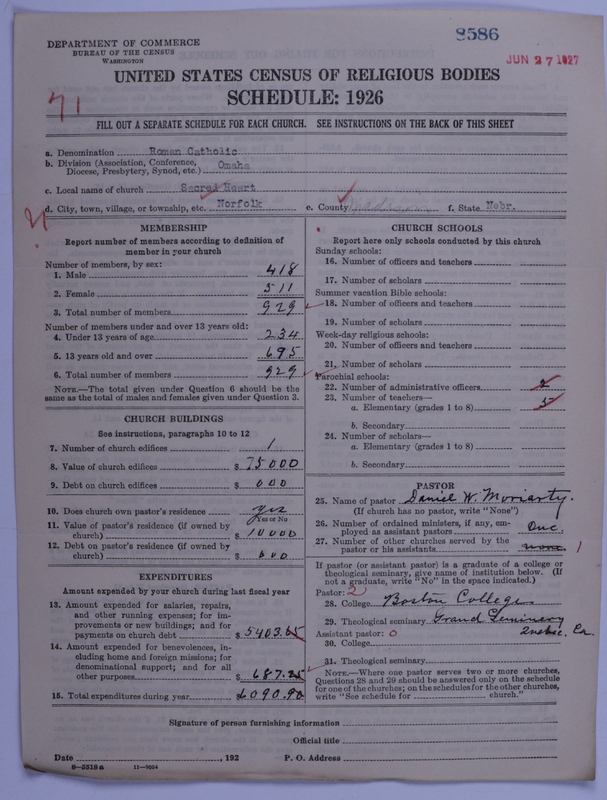 8586
JUN 27 1927
DEPARTMENT OF COMMERCE
BUREAU OF THE CENSUS
WASHINGTON
UNITED STATES CENSUS OF RELIGIOUS BODIES
SCHEDULE: 1926
71
FILL OUT A SEPARATE SCHEDULE FOR EACH CHURCH. SEE INSTRUCTIONS ON THE BACK OF THIS SHEET
a. Denomination Roman Catholic
b. Division (Association, Conference, Diocese, Presbytery, Synod, etc.) Omaha
c. Local name of church Sacred Heart
d. City, town, village, or township, etc. Norfolk e. County Madison f. State Nebr.
MEMBERSHIP
Report number of members according to definition of
member in your church
Number of members, by sex:
1. Male 418
2. Female 511
3. Total number of members 929
Number of members under and over 13 years old:
4. Under 13 years of age 234
5. 13 years old and over 695
6. Total number of members 929
NOTE.—The total given under Question 6 should be
same as the total of males and females given under Question 3.
CHURCH BUILDINGS
See instructions, paragraphs 10 to 12
7. Number of church edifices 1
8. Value of church edifices $ 75000
9. Debt on church edifices $ 000
10. Does church own pastor's residence yes
Yes or No
11. Value of pastor's residence (if owned by
church) $ 10000
12. Debt on pastor's residence (if owned by
church) $ 000
EXPENDITURES
Amount expended by your church during last fiscal year
13. Amount expended for salaries, repairs,
and other running expenses; for im-
provements or new buildings; and for
payments on church debt $ 5403.65
14. Amount expended for benevolences, in-
cluding home and foreign missions; for
denominational support; and for all
other purposes $ 687.25
15. Total expenditures during year 6090.90
CHURCH SCHOOLS
Report here only schools conducted by this church
Sunday schools:
16. Number of officers and teachers
17. Number of scholars
Summer vacation Bible schools:
18. Number of officers and teachers
19. Number of scholars
Week-day religious schools:
20. Number of officers and teachers
21. Number of scholars
Parochial schools:
22. Number of administrative officers 2
23. Number of teachers—
a. Elementary (grades 1 to 8) 5
b. Secondary
24. Number of scholars—
a. Elementary (grades 1 to 8)
b. Secondary
PASTOR
25. Name of pastor Daniel W. Moriarty.
(If church has no pastor, write "None")
26. Number of ordained ministers, if any, em-
ployed as assistant pastors One
27. Number of other churches served by the
pastor or his assistants none 1
If pastor (or assistant pastor) is a graduate of a college or
theological seminary, give name of institution below. (If
not a graduate, write "No" in the space indicated.)
Pastor: 2
28. College Boston College
29. Theological seminary Grand Seminary
Quebec, Ca.
Assistant pastor: 0
30. College
31. Theological seminary
NOTE.—Where one pastor serves two or more churches,
Questions 28 and 29 should be answered only on the schedule
for one of the churches; on the schedules for the other churches,
write "See schedule for church."
Signature of person furnishing information
Official title
Date , 192 P. O. Address
8—5319 a 11—9034